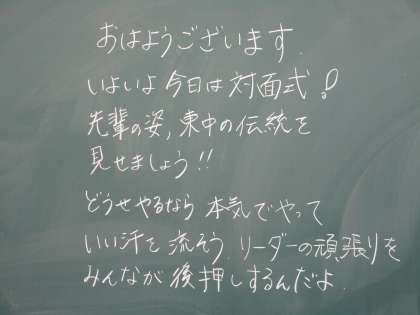 おはようございます.
いよいよ今日は対面式!
先輩の姿,東中の伝統を
見せましょう!!
どうせやるなら本気でやって
いい汗を流そう.リーダーの頑張りを
みんなが後押しするんだよ.